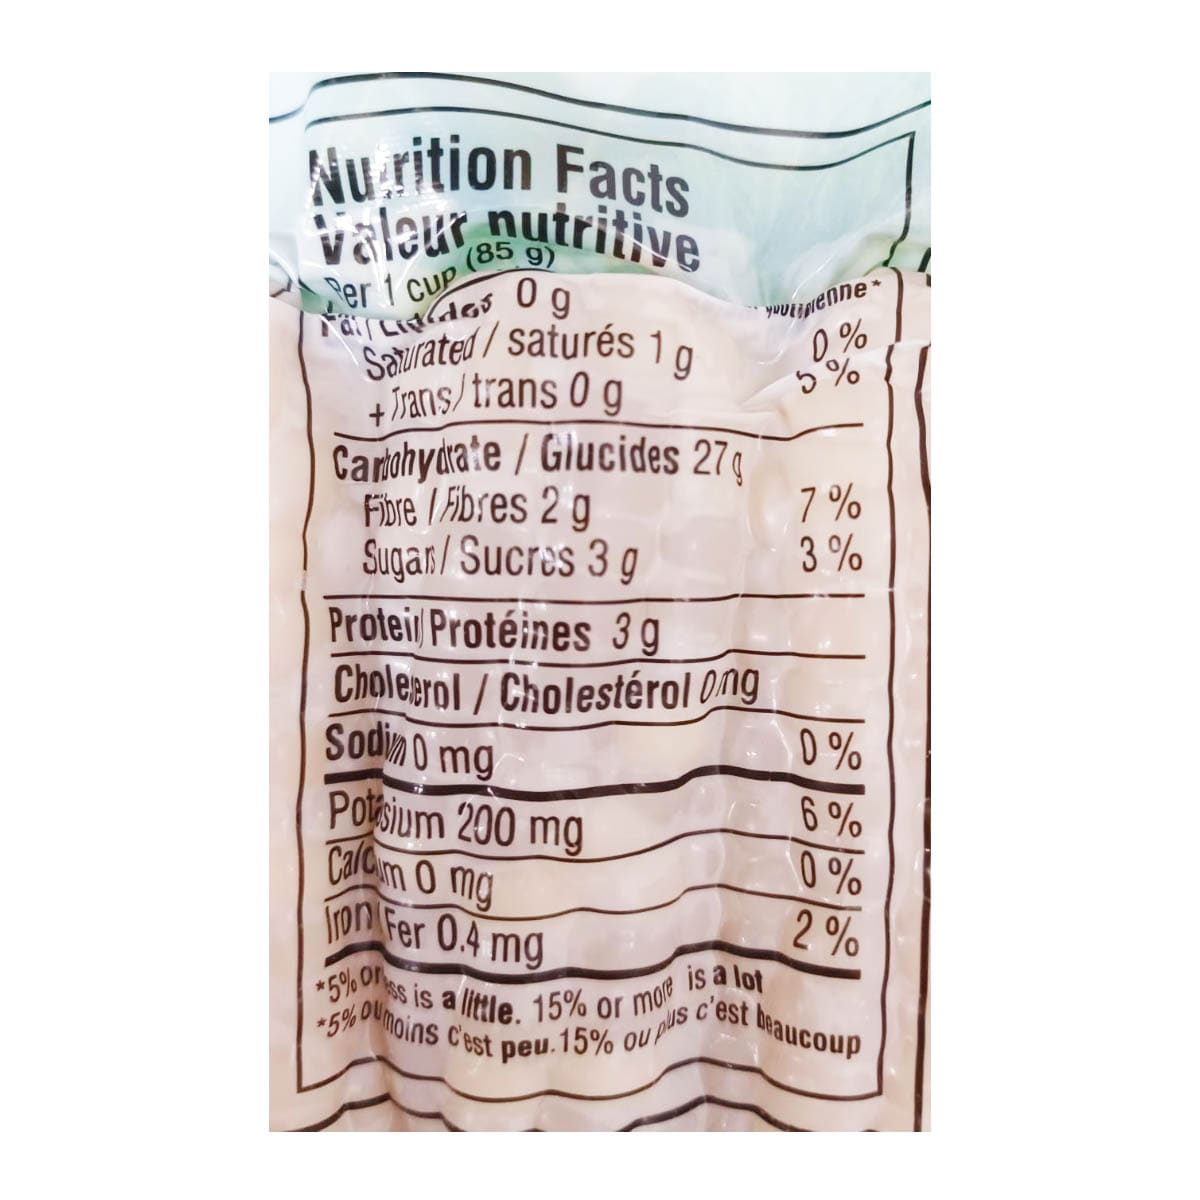 Nutrition Facts
Valeur nutritive
Per 1 cup (85 g)
quotidienne*
Fat / Lipides 0 g 0 %
Saturated / saturés 1 g
+ Trans / trans 0 g 5 %
Carbohydrate / Glucides 27 g
Fibre / Fibres 2 g 7 %
Sugars / Sucres 3 g 3 %
Protein / Protéines 3 g
Cholesterol / Cholestérol 0 mg
Sodium 0 mg 0 %
Potassium 200 mg 6 %
Calcium 0 mg 0 %
Iron / Fer 0.4 mg 2 %
*5% or less is a little. 15% or more is a lot
*5% ou moins c'est peu. 15% ou plus c'est beaucoup